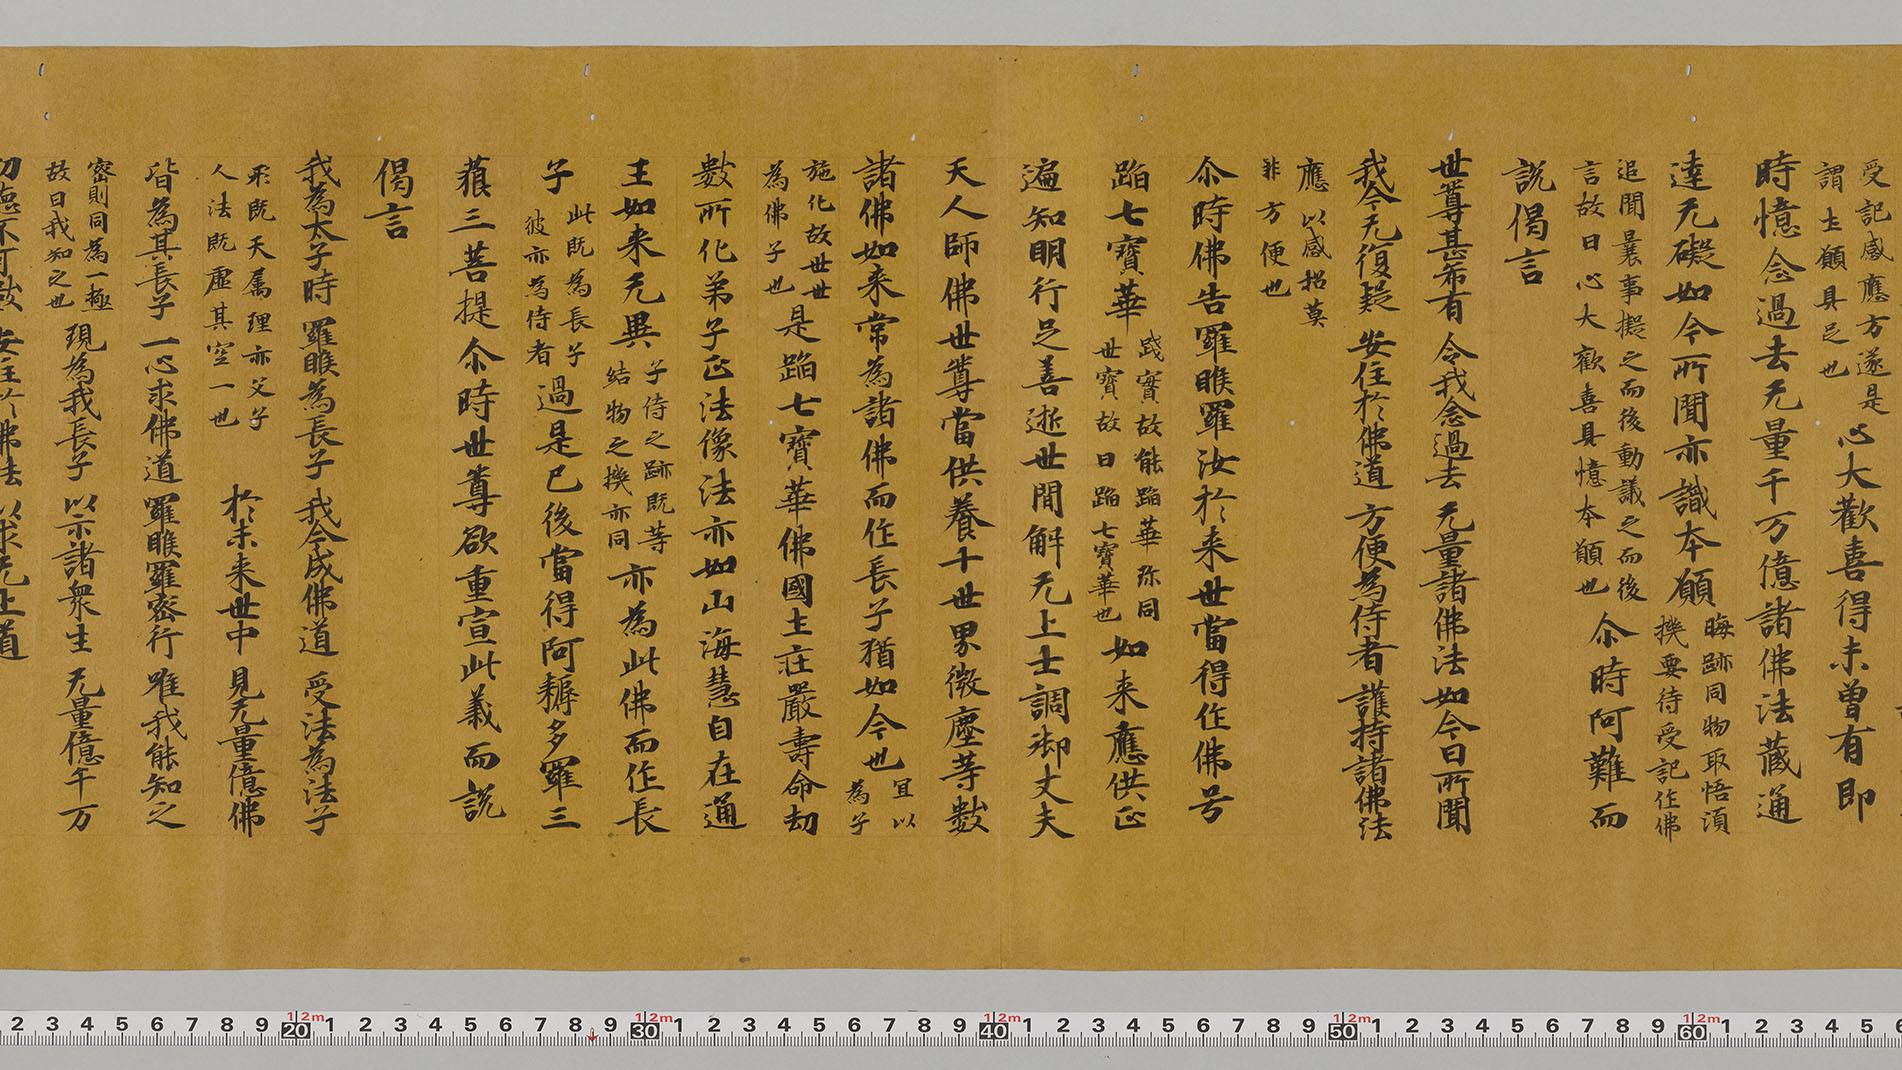 受記感應方遂是
謂土願具足也
心大歡喜得未曾有即
時憶念過去无量千万億諸佛法藏通
達无礙如今所聞亦識本願
晦跡同物取悟湏
機要待受記住佛
追聞曩事擬之而後動議之而後
言故曰心大歡喜具憶本願也
尒時阿難而
説偈言
世尊甚希有 令我念過去 无量諸佛法 如今日所聞
我今无復疑 安住於佛道 方便為侍者 護持諸佛法
應以感招莫
非方便也
尒時佛告羅睺羅汝於来世當得作佛号
蹈七寶華
踐寶故能蹈華祢同
世寶故曰蹈七寶華也
如来應供正
遍知明行足善逝世間解无上士調御丈夫
天人師佛世尊當供養十世界微塵等數
諸佛如来常為諸佛而作長子猶如今也
宜以
為子
施化故世世
為佛子也
是蹈七寶華佛國土莊嚴壽命劫
數所化弟子正法像法亦如山海慧自在通
王如来无異
子侍之跡既等
結物之機亦同
亦為此佛而作長
子
此既為長子
彼亦為侍者
過是已後當得阿耨多羅三
藐三菩提尒時世尊欲重宣此義而説
偈言
我為太子時 羅睺為長子 我今成佛道 受法為法子
形既天属理亦父子
人法既虚其空一也
於未来世中 見无量億佛
皆為其長子 一心求佛道 羅睺羅密行 唯我能知之
密則同為一極
故曰我知之也
現為我長子 以示諸衆生 无量億千万
功德不可數 安住於佛法 以求无上道